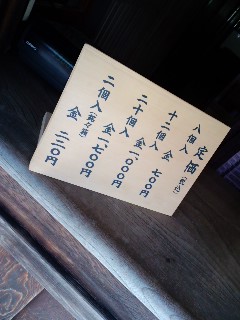 定価(税込)
八個入 金 七〇〇円
十二個入 金一、〇〇〇円
二十個入 金一、七〇〇円
二個入 金 二三〇円